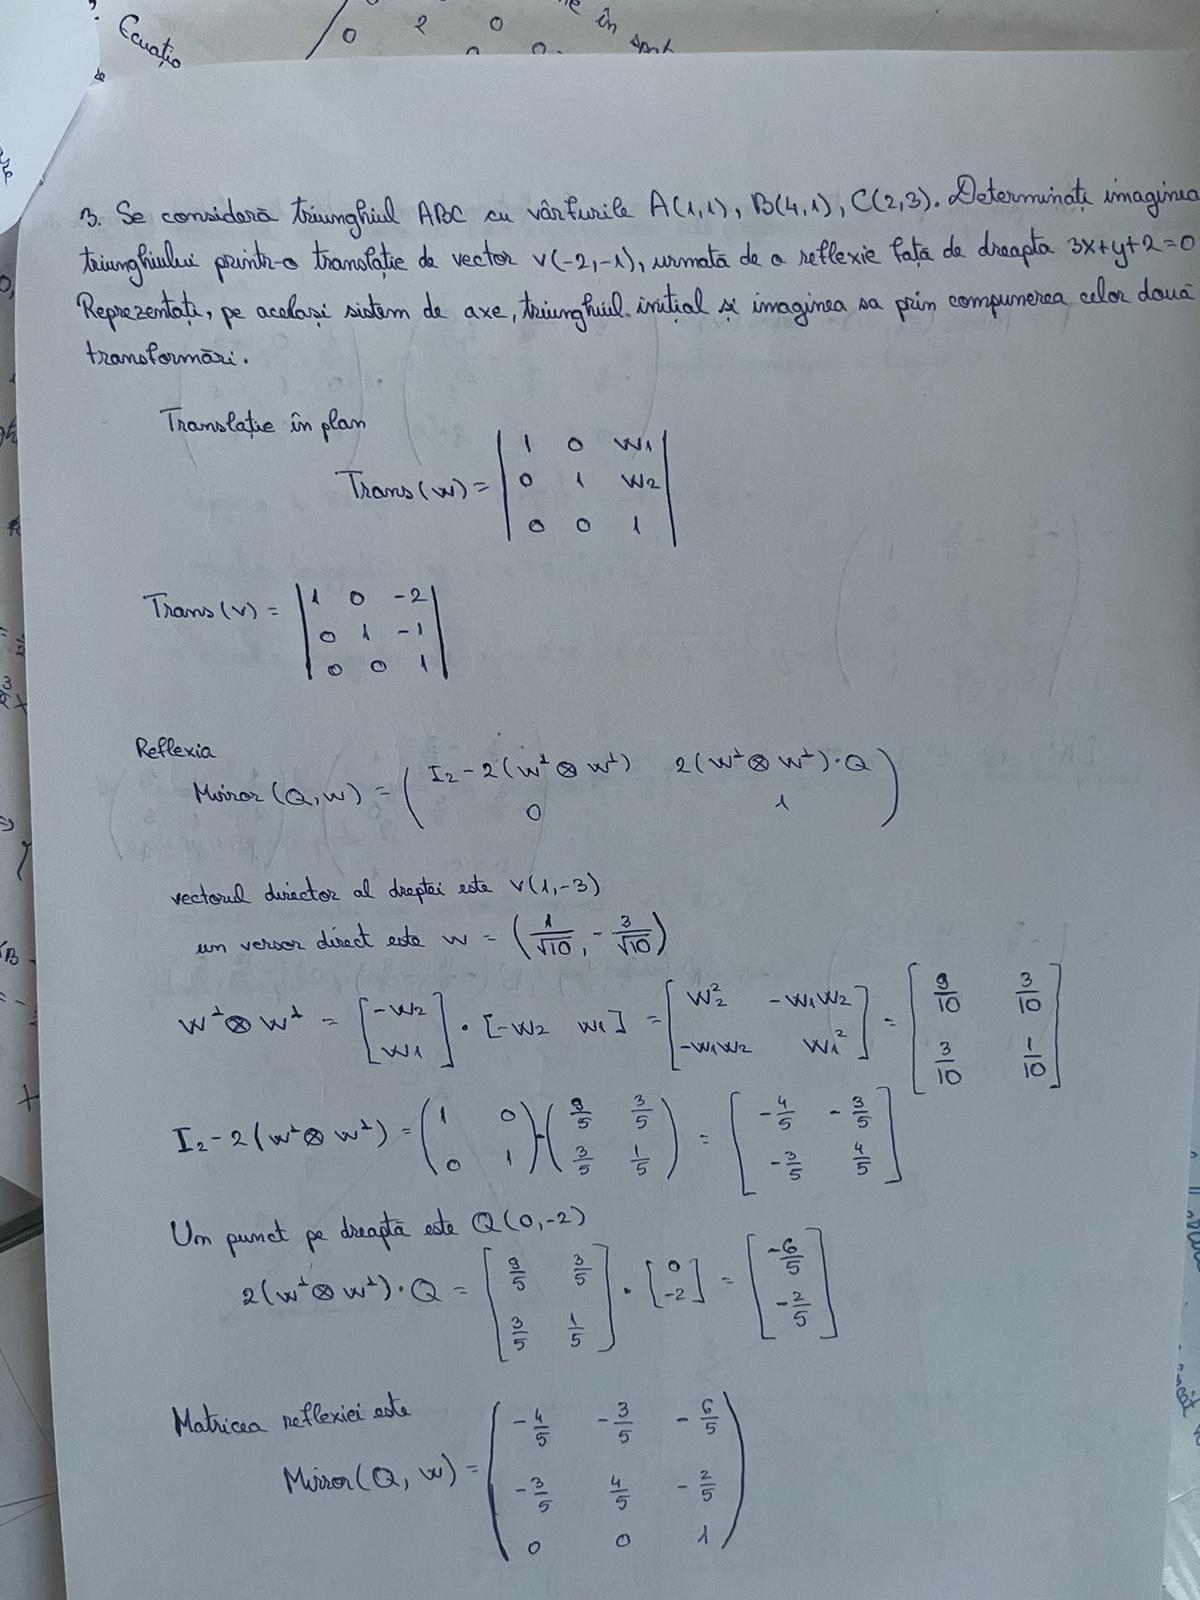 Ecuatio
0 2 0
în
3. Se consideră triunghiul ABC cu vârfurile A(1,1), B(4,1), C(2,3). Determinați imaginea
triunghiului printr-o translație de vector v(-2,-1), urmată de o reflexie față de dreapta 3x+y+2=0
Reprezentați, pe același sistem de axe, triunghiul inițial și imaginea sa prin compunerea celor două
transformări.
Translație în plan
Trans(w) = | 1 0 w1 |
| 0 1 w2 |
| 0 0 1 |
Trans(v) = | 1 0 -2 |
| 0 1 -1 |
| 0 0 1 |
Reflexia
Mirror(Q,w) = ( I₂-2(w^⊥ ⊗ w^⊥) 2(w^⊥ ⊗ w^⊥)·Q )
( 0 1 )
vectorul director al dreptei este v(1,-3)
un versor direct este w = (1/√10, -3/√10)
w^⊥ ⊗ w^⊥ = [-w2; w1] · [-w2 w1] = [w2² -w1w2; -w1w2 w1²] = [9/10 3/10; 3/10 1/10]
I₂-2(w^⊥ ⊗ w^⊥) = (1 0; 0 1) - (9/5 3/5; 3/5 1/5) = [-4/5 -3/5; -3/5 4/5]
Un punct pe dreaptă este Q(0,-2)
2(w^⊥ ⊗ w^⊥)·Q = [9/5 3/5; 3/5 1/5] · [0; -2] = [-6/5; -2/5]
Matricea reflexiei este
Mirror(Q, w) = ( -4/5 -3/5 -6/5 )
( -3/5 4/5 -2/5 )
( 0 0 1 )